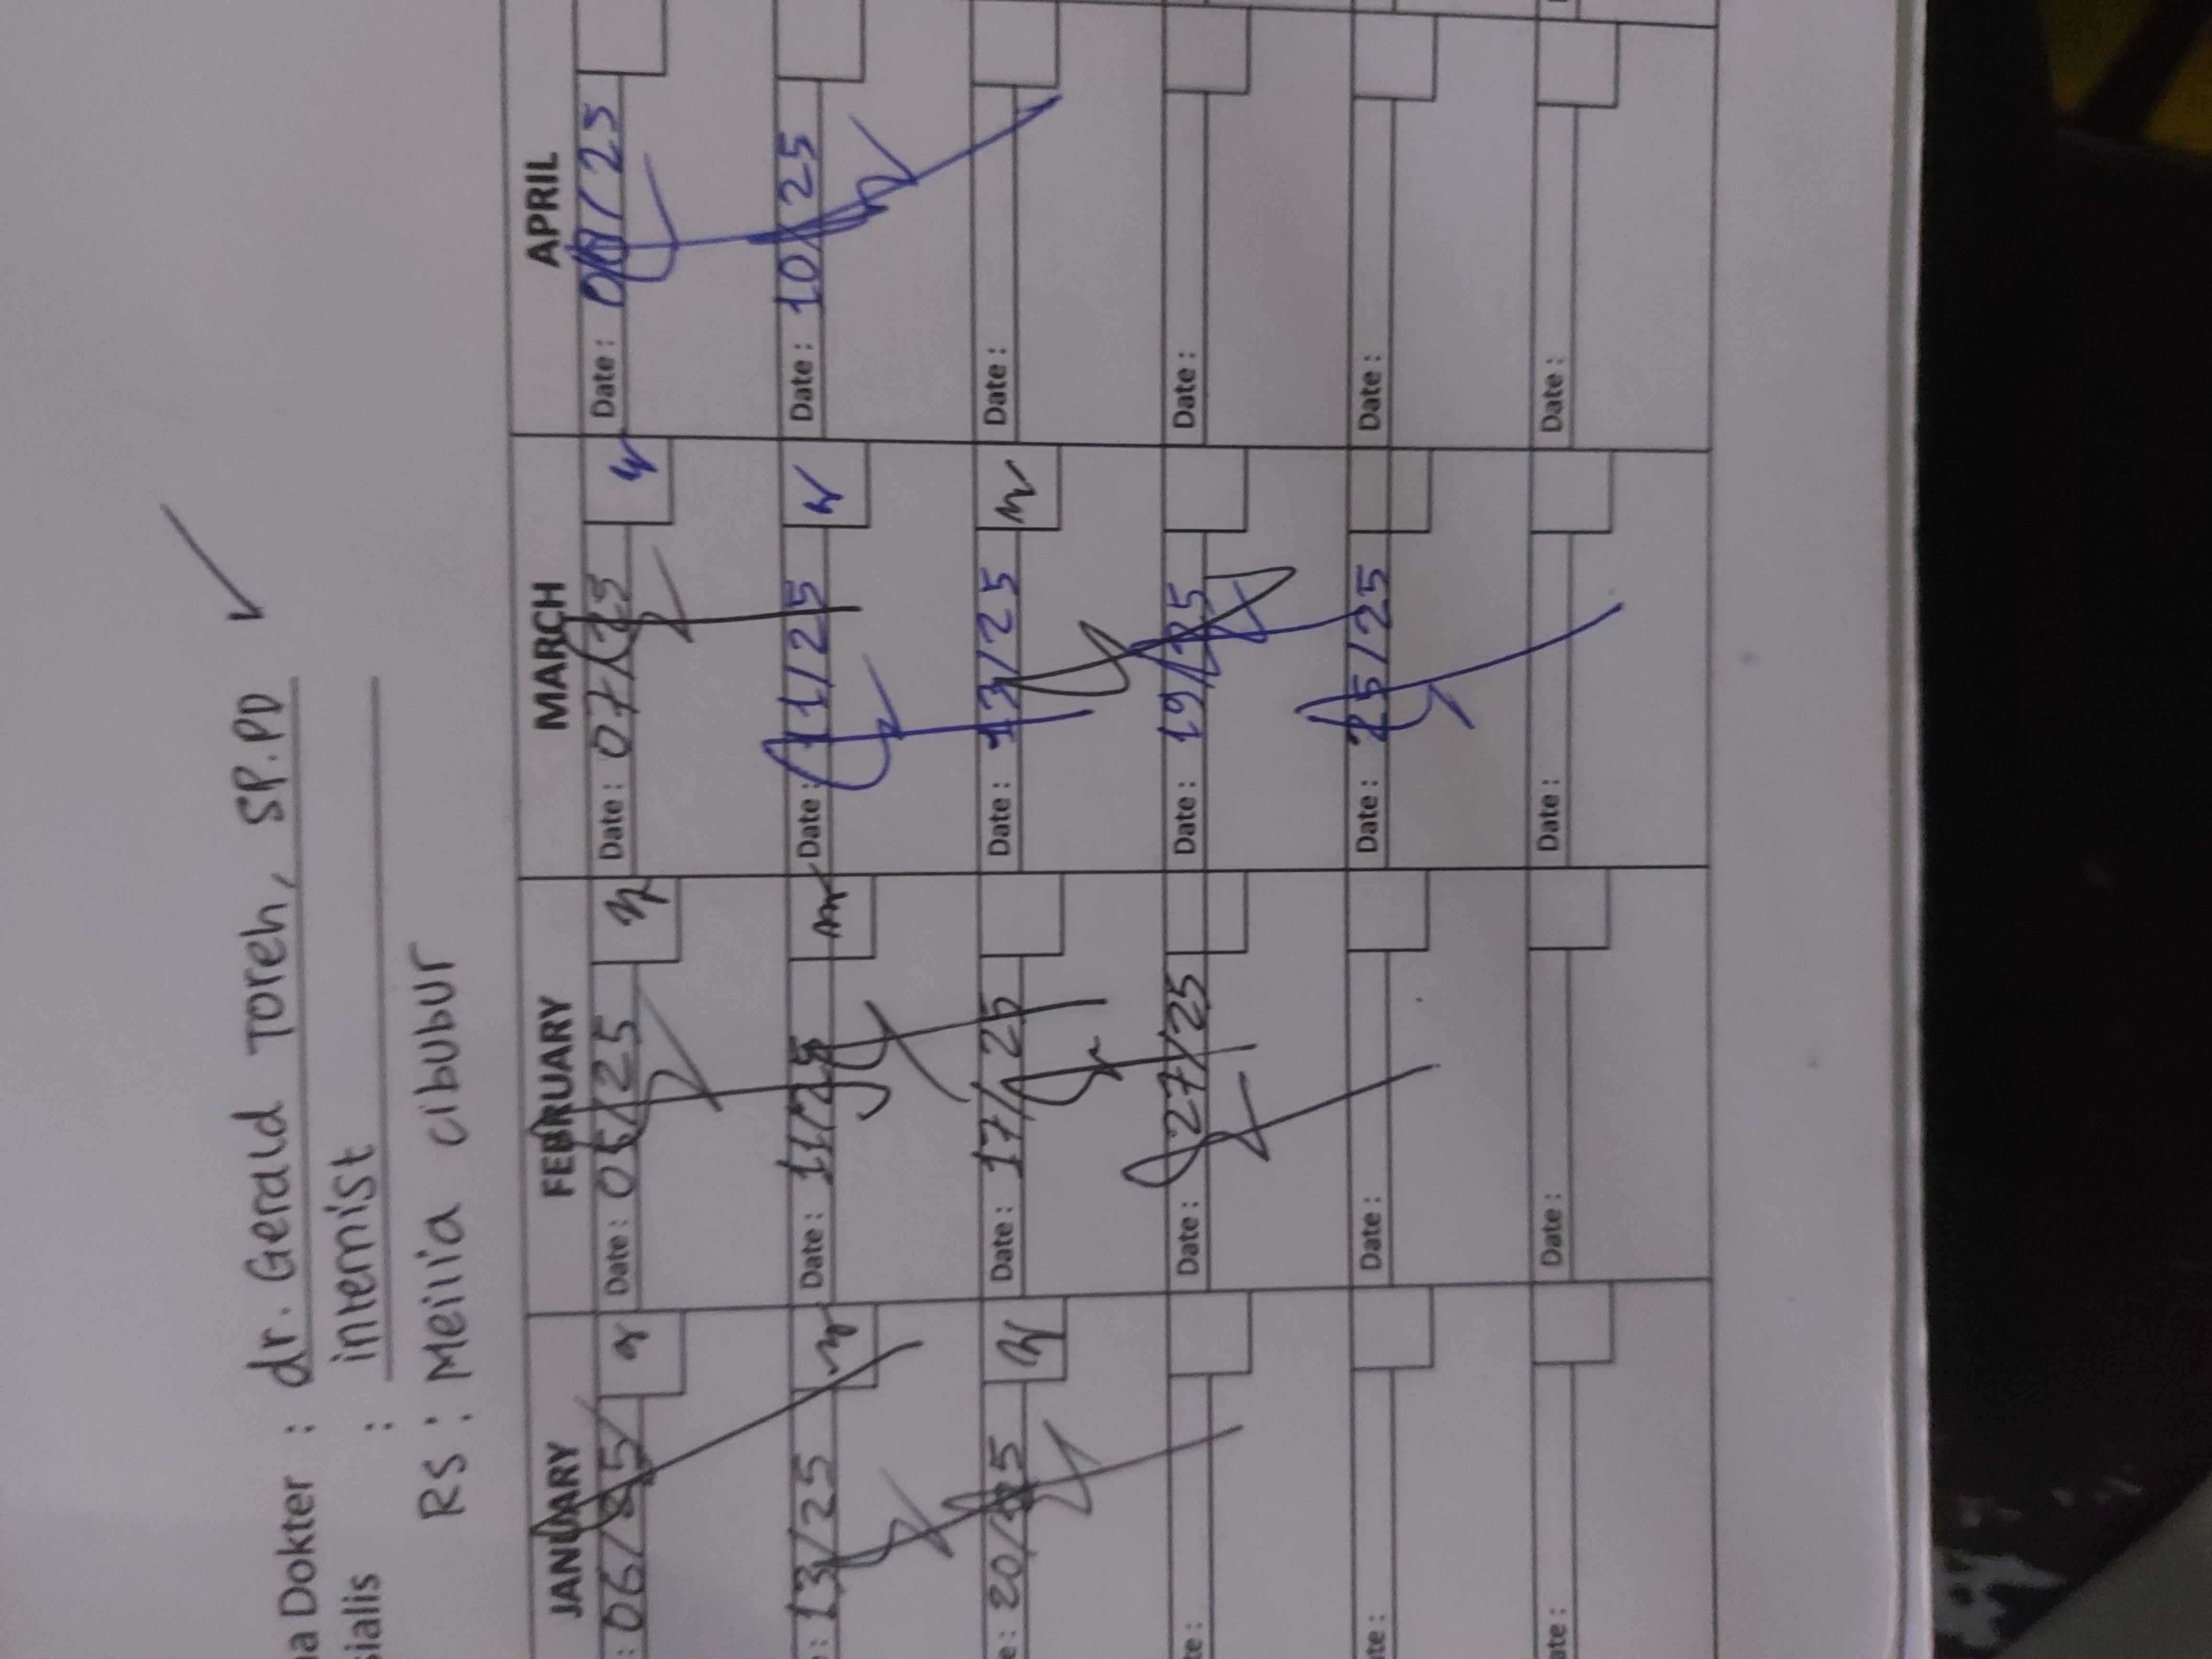 na Dokter : dr. Gerald Toreh, SP.PD
sialis : internist
RS : Meilia cibubur
JANUARY FEBRUARY MARCH APRIL
: 06/25 Date : 05/25 Date : 07/25 Date : /25
: 13/25 Date : 11/25 Date : 11/25 Date : 10/25
e : 20/25 Date : 17/25 Date : 13/25 Date :
te : Date : 27/25 Date : 19/25 Date :
ate : Date : Date : 25/25 Date :
ate : Date : Date : Date :